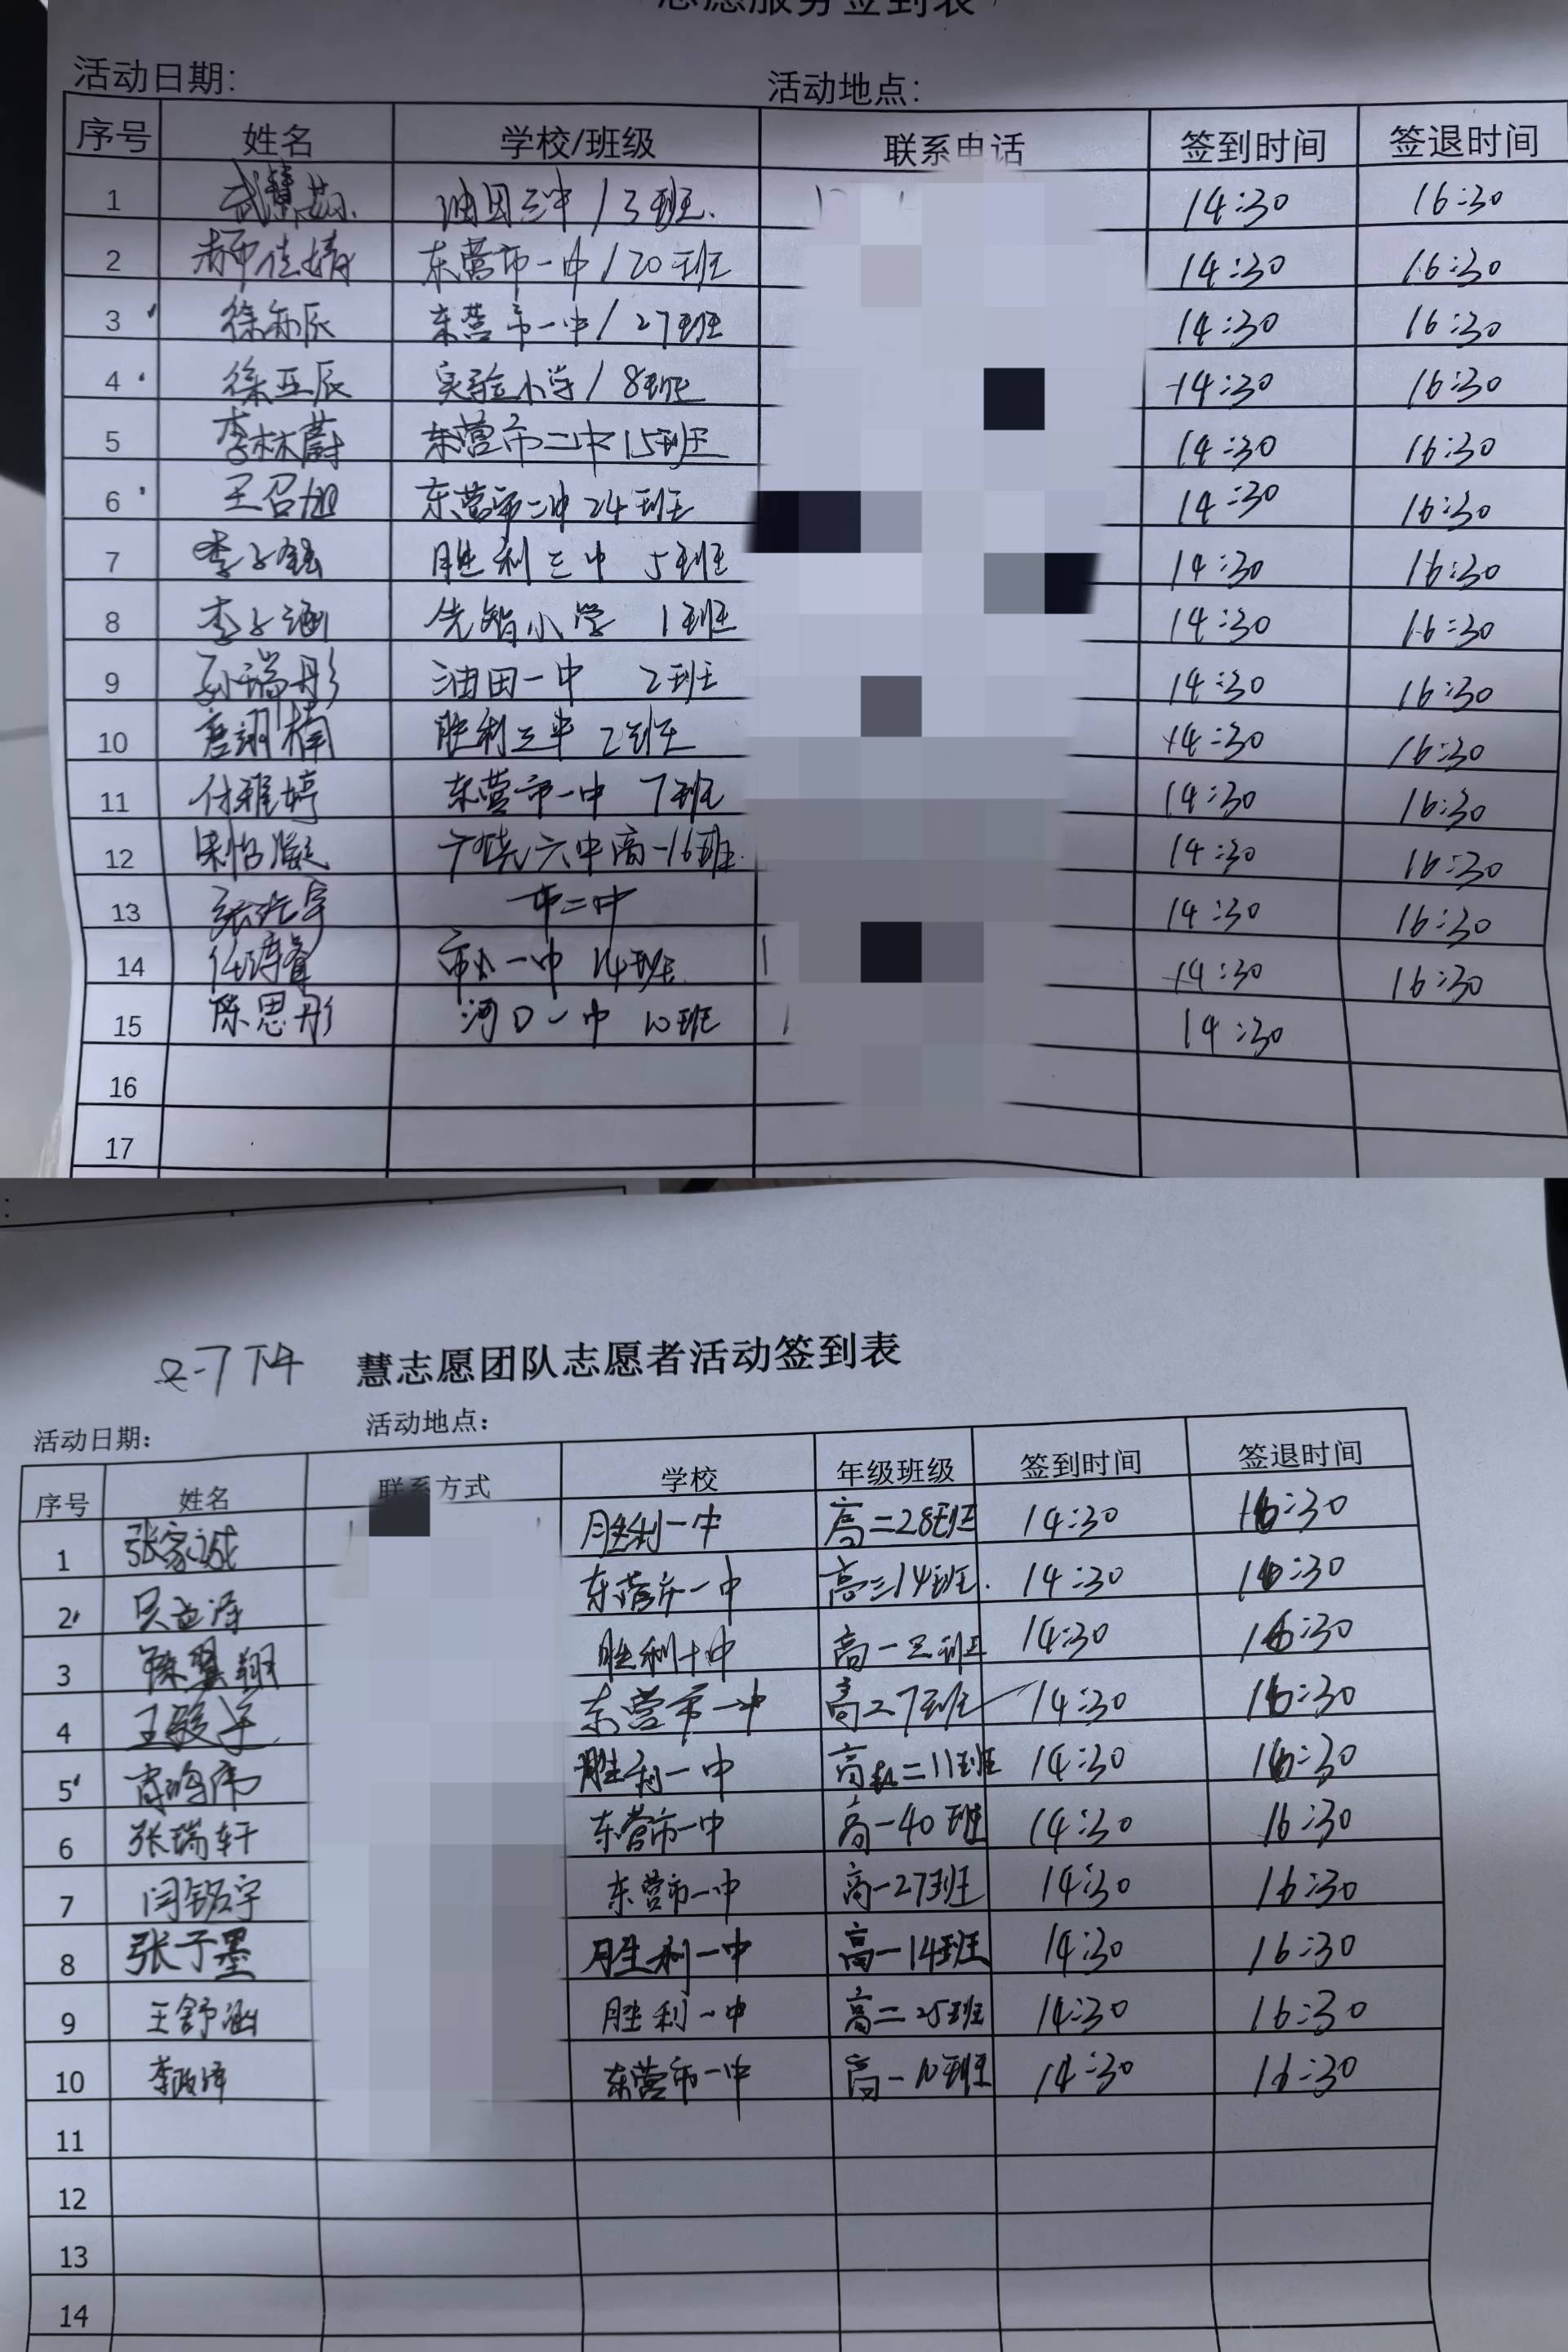 志愿服务签到表
活动日期: 活动地点:
序号 姓名 学校/班级 联系电话 签到时间 签退时间
1 油田三中/3班. 14:30 16:30
2 佳婧 东营市一中/20班 14:30 16:30
3 徐知辰 东营市一中/27班 14:30 16:30
4 徐亚辰 实验小学/8班 14:30 16:30
5 李林蔚 东营市二中15班 14:30 16:30
6 王召旭 东营市二中24班 14:30 16:30
7 李子钰 胜利三中 5班 14:30 16:30
8 李子涵 先智小学 1班 14:30 16:30
9 孙瑞彤 油田一中 2班 14:30 16:30
10 唐翊楠 胜利三中 2班 14:30 16:30
11 付雅婷 东营市一中 7班 14:30 16:30
12 怡凝 广饶六中高一16班. 14:30 16:30
13 张 宇 市二中 14:30 16:30
14 任 一中 14班 14:30 16:30
15 陈思彤 河口一中 10班 14:30
16
17
:
2-7 下午 慧志愿团队志愿者活动签到表
活动日期: 活动地点:
序号 姓名 联系方式 学校 年级班级 签到时间 签退时间
1 张家诚 胜利一中 高二28班 14:30 16:30
2 东营市一中 高三14班. 14:30 16:30
3 翼翔 胜利十中 高一三班 14:30 16:30
4 王 东营市一中 高二7班 14:30 16:30
5 鸣 胜利一中 高二11班 14:30 16:30
6 张瑞轩 东营市一中 高一40班 14:30 16:30
7 闫铭宇 东营市一中 高一27班 14:30 16:30
8 张于墨 胜利一中 高一14班 14:30 16:30
9 王舒涵 胜利一中 高二25班 14:30 16:30
10 李政泽 东营市一中 高一10班 14:30 16:30
11
12
13
14